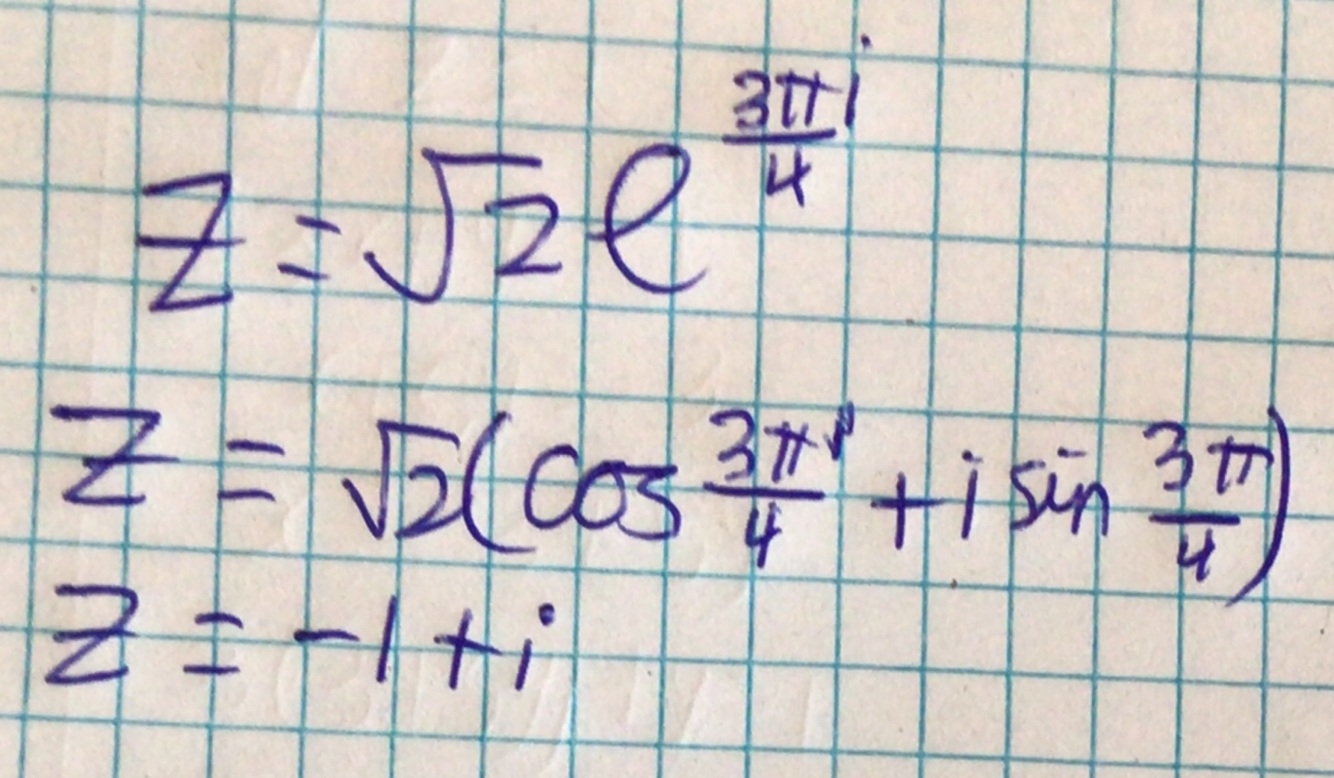 z = √2 e^(3πi/4)
z = √2(cos 3π/4 + i sin 3π/4)
z = -1 + i